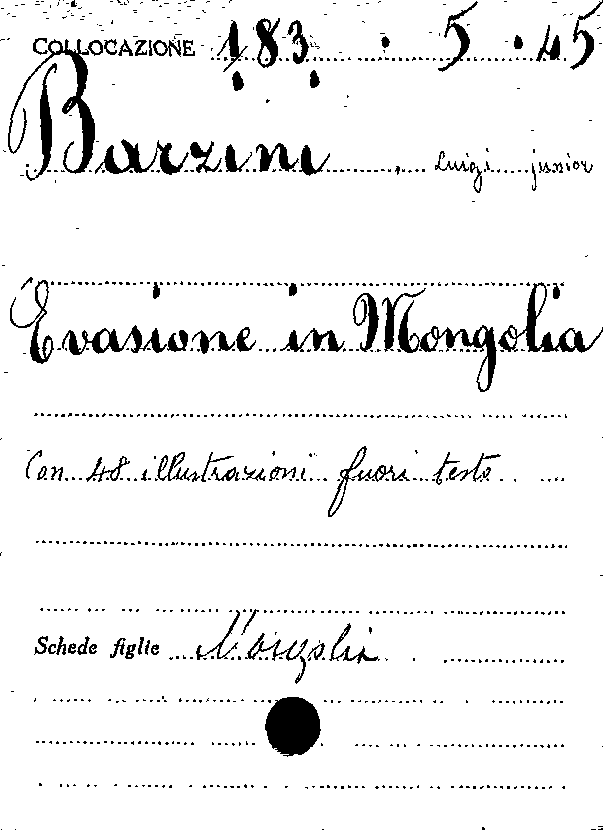 COLLOCAZIONE 183 . 5 . 45
Barzini, Luigi junior
Evasione in Mongolia
Con 48 illustrazioni fuori testo
Schede figlie Mongolia